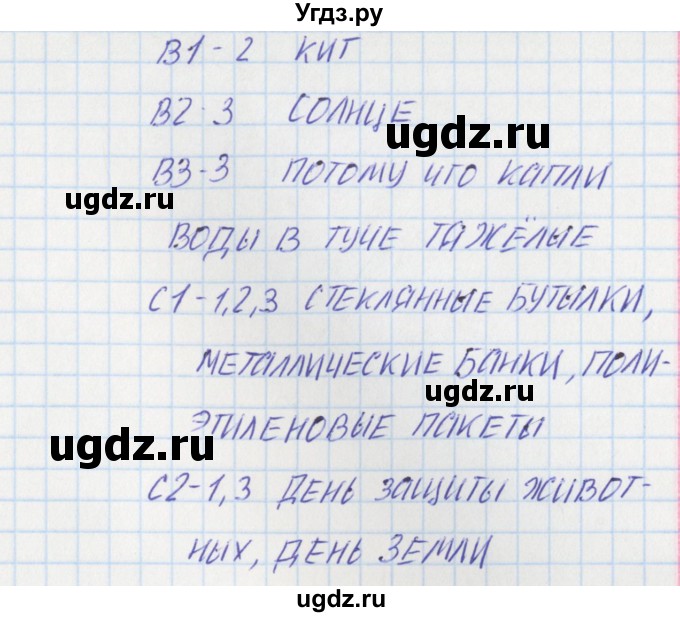 Угдз.ру
В1-2 КИТ
В2-3 СОЛНЦЕ
ugdz.ru
В3-3 ПОТОМУ ЧТО КАПЛИ
ugdz.ru
ВОДЫ В ТУЧЕ ТАЖЁЛЫЕ
С1-1,2,3 СТЕКЛЯННЫЕ БУТЫЛКИ,
МЕТАЛЛИЧЕСКИЕ БАНКИ, ПОЛИ-
ugdz.ru
ЭТИЛЕНОВЫЕ ПАКЕТЫ
ugdz.ru
С2-1,3 ДЕНЬ ЗАЩИТЫ ЖИВОТ-
НЫХ, ДЕНЬ ЗЕМЛИ
ugdz.ru
ugdz.ru